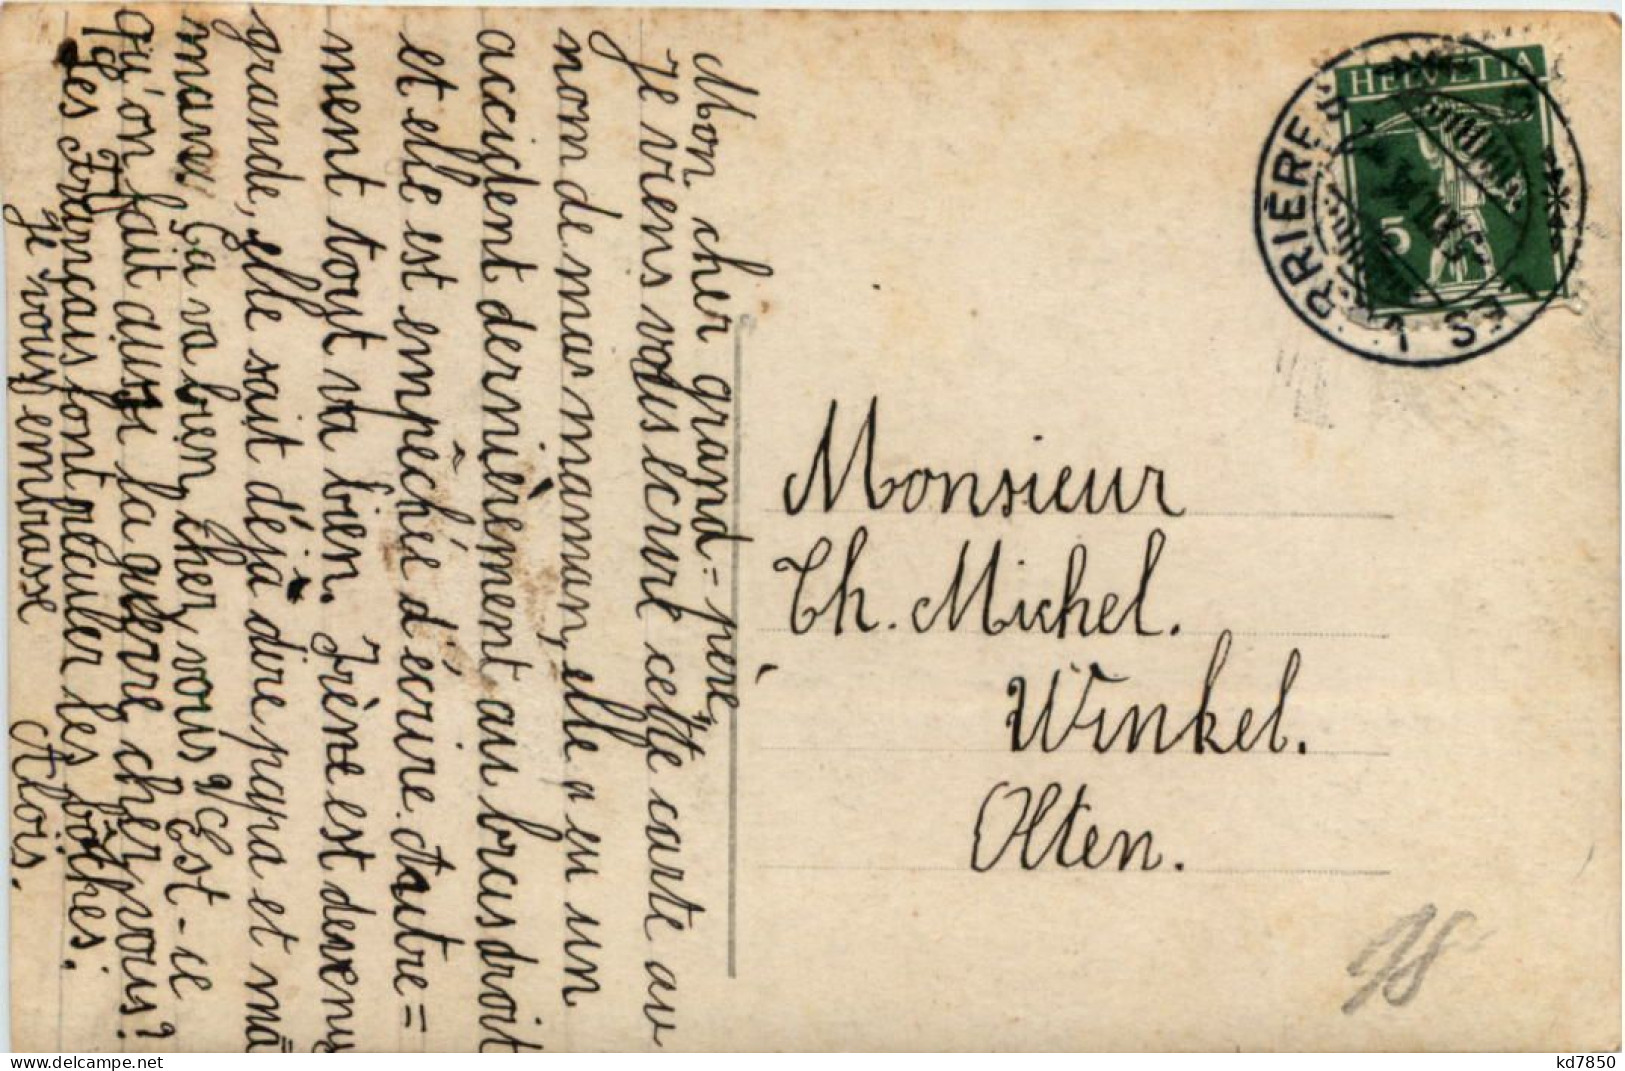 Mon cher grand=père,
Je viens vous écrire cette carte au
nom de ma maman, elle a eu un
accident dernièrement au bras droit
et elle est empêchée d'écrire. Autre=
ment tout va bien. Irène est devenu
grande, elle sait déjà dire papa et ma=
man. Ça va bien, cher, vous? Est-ce
qu'on fait aussi la guerre, cher vous?
Les Français font reculer les bôches.
Je vous embrasse
Aloïs.
HELVETIA
5
LES VERRIÈRES
Monsieur
Th. Michel.
Winkel.
Olten.
98
kd7850